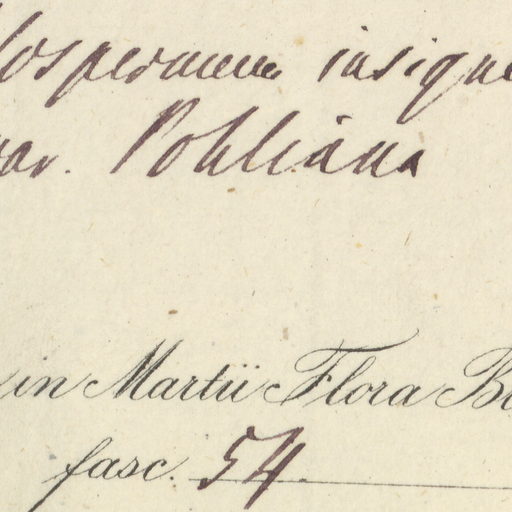 lospermum insigne
var. Pohliana
in Martii Flora B
fasc. 54.